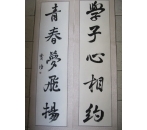 學子心相約
青春夢飛揚